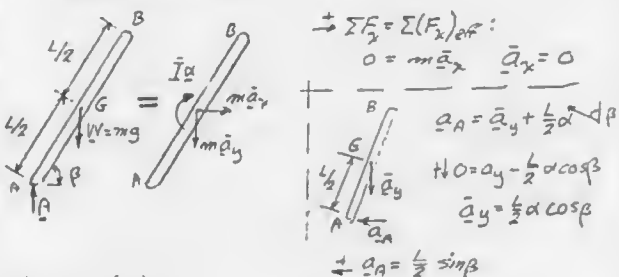 L/2
L/2
B
G
W=mg
A
β
A
=
B
Īα
māx
māy
A
+→ ΣFx = Σ(Fx)eff :
0 = māx āx = 0
B
G
L/2
āy
A
aA
aA = āy + L/2 α β
+↓ 0 = ay - L/2 α cosβ
āy = L/2 α cosβ
+← aA = L/2 sinβ